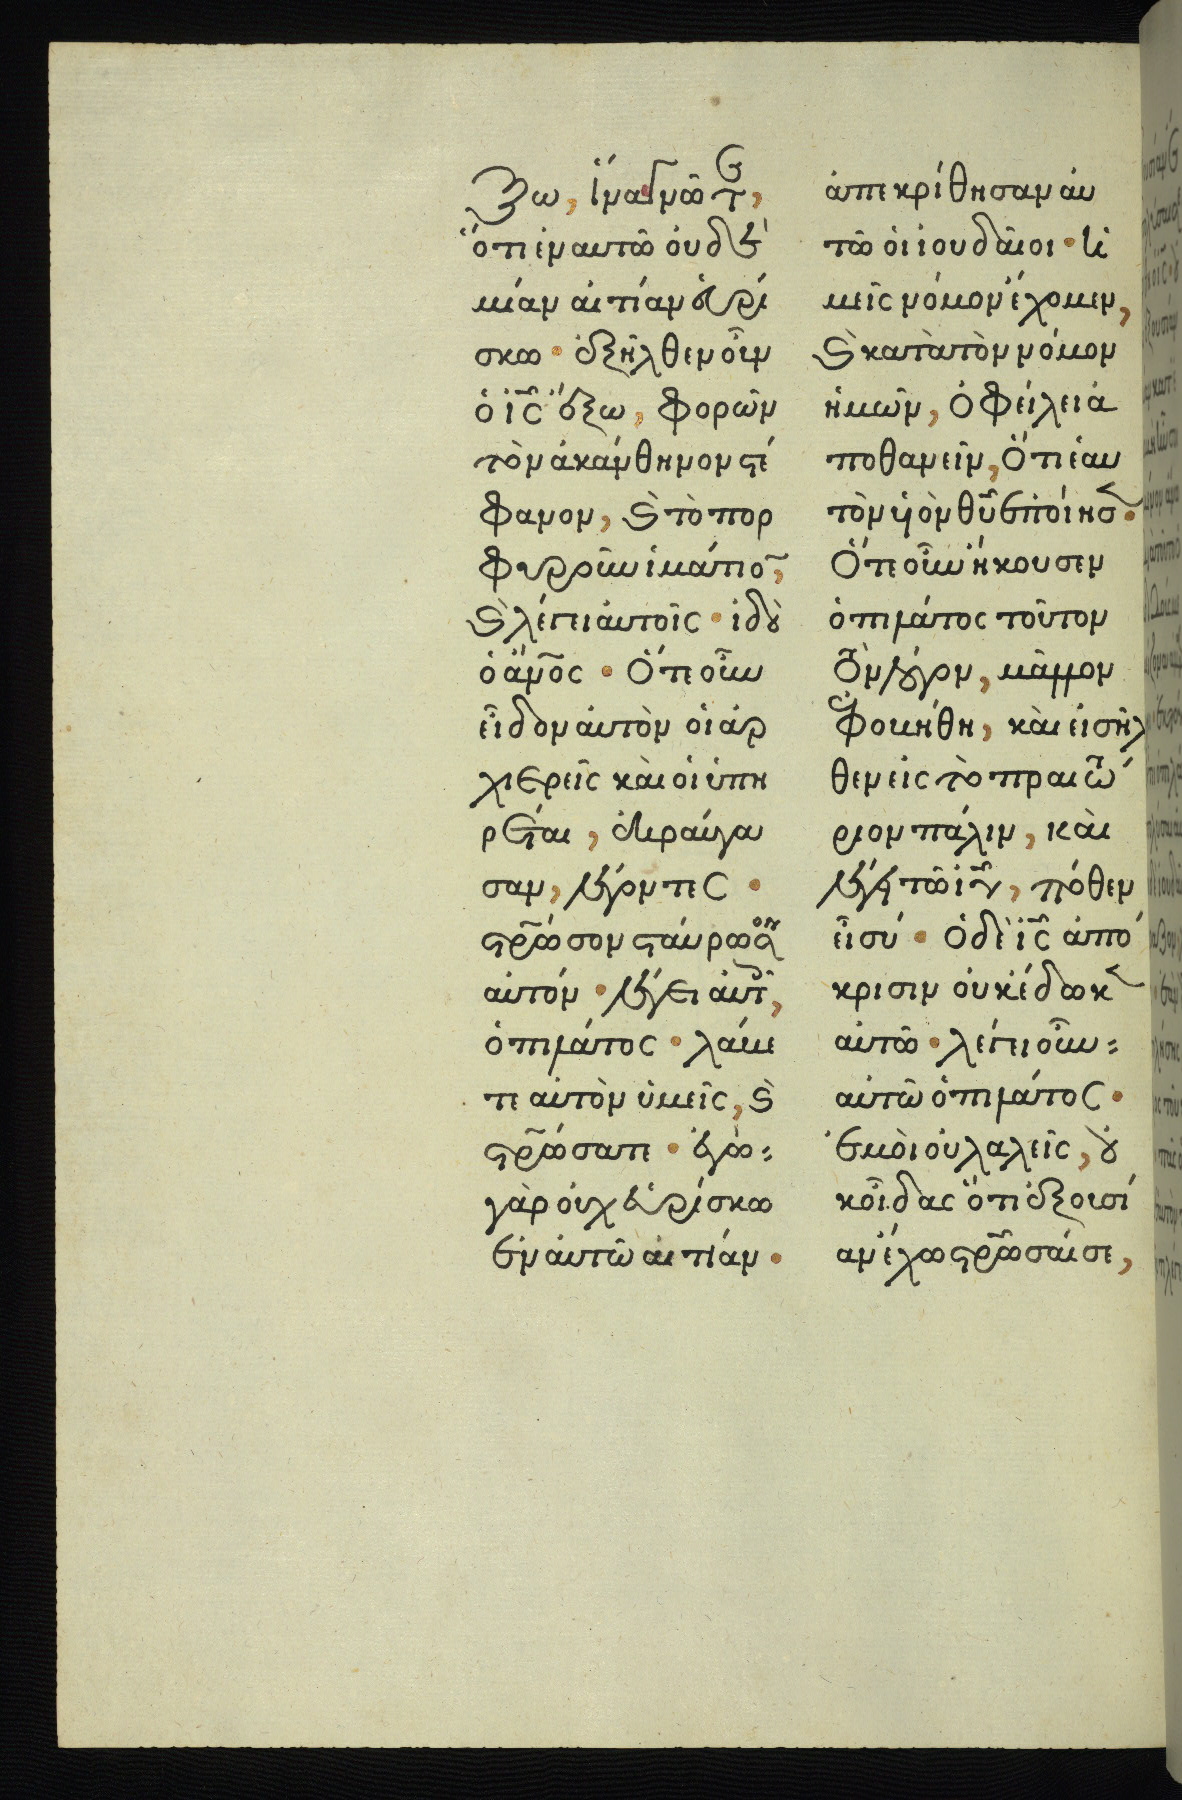 ξω, ἵνα γνῶτε,
ὅτι ἐν αὐτῶ οὐδε
μίαν αἰτίαν εὑρί
σκω · ἐξῆλθεν οὖν
ὁ ις̅ ἔξω, φορῶν
τὸν ἀκάνθινον στέ
φανον, καὶ τὸ πορ
φυροῦν ἱμάτιον,
καὶ λέγει αὐτοῖς · ἰδοὺ
ὁ ἄνος · Ὅτε οὖν
εἶδον αὐτὸν οἱ ἀρ
χιερεῖς καὶ οἱ ὑπη
ρέται, ἐκραύγα
σαν, λέγοντες ·
σταύρωσον σταύρωσον
αὐτόν · λέγει αὐτοῖς,
ὁ πιλάτος · λάβε
τε αὐτὸν ὑμεῖς, καὶ
σταυρώσατε · ἐγὼ
γὰρ οὐχ εὑρίσκω
ἐν αὐτῶ αἰτίαν ·
ἀπεκρίθησαν αὐ
τῶ οἱ ἰουδαῖοι · ἡ
μεῖς νόμον ἔχομεν,
καὶ κατὰ τὸν νόμον
ἡμῶν, ὀφείλει ἀ
ποθανεῖν, Ὅτι ἑαυ
τὸν υἱὸν θυ̅ ἐποίησεν ·
Ὅτε οὖν ἤκουσεν
ὁ πιλάτος τοῦτον
τὸν λόγον, μᾶλλον
ἐφοβήθη, καὶ εἰσῆλ
θεν εἰς τὸ πραιτώ
ριον πάλιν, καὶ
λέγει τῶ ιυ̅, πόθεν
εἶ σύ · Ὁ δὲ ις̅ ἀπό
κρισιν οὐκ ἔδωκεν
αὐτῶ · λέγει οὖν
αὐτῶ ὁ πιλάτος ·
ἐμοὶ οὐ λαλεῖς, οὐ
κ οἶδας ὅτι ἐξουσί
αν ἔχω σταυρῶσαί σε,